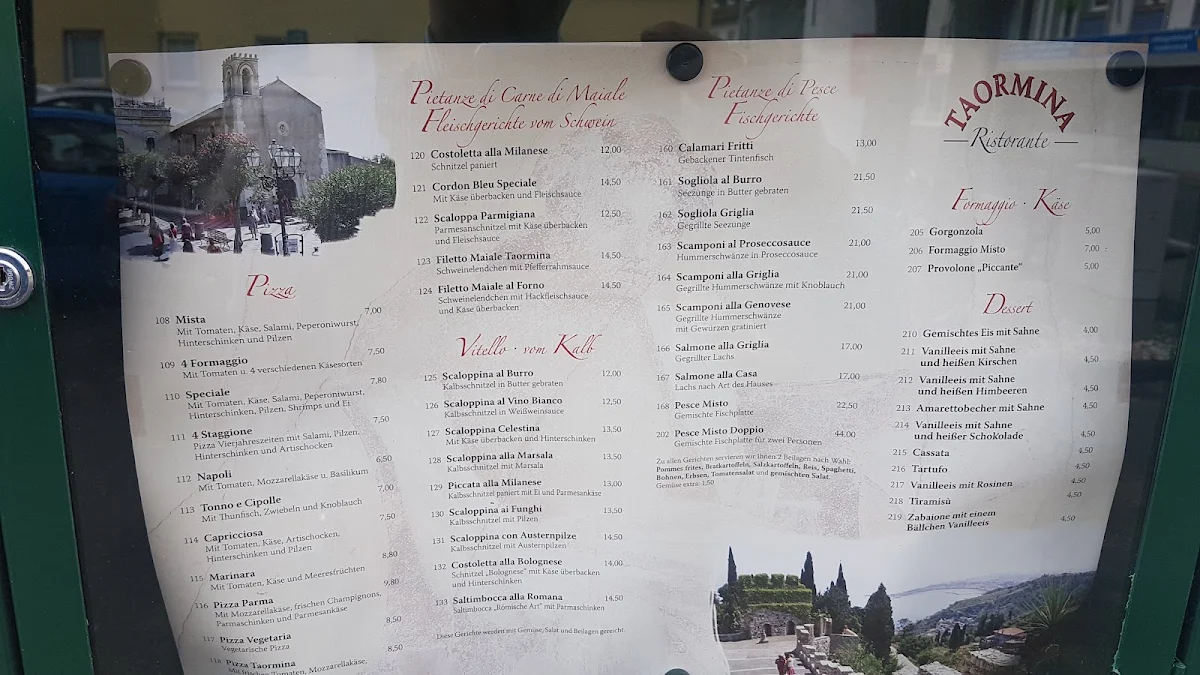 Pizza
108 Mista 7,00
Mit Tomaten, Käse, Salami, Peperoniwurst,
Hinterschinken und Pilzen
109 4 Formaggio 7,50
Mit Tomaten u. 4 verschiedenen Käsesorten
110 Speciale 7,80
Mit Tomaten, Käse, Salami, Peperoniwurst,
Hinterschinken, Pilzen, Shrimps und Ei
111 4 Staggione 7,50
Pizza Vierjahreszeiten mit Salami, Pilzen,
Hinterschinken und Artischocken
112 Napoli 6,50
Mit Tomaten, Mozzarellakäse u. Basilikum
113 Tonno e Cipolle 7,00
Mit Thunfisch, Zwiebeln und Knoblauch
114 Capricciosa 7,50
Mit Tomaten, Käse, Artischocken,
Hinterschinken und Pilzen
115 Marinara 8,80
Mit Tomaten, Käse und Meeresfrüchten
116 Pizza Parma 9,80
Mit Mozzarellakäse, frischen Champignons,
Parmaschinken und Parmesankäse
117 Pizza Vegetaria 8,50
Vegetarische Pizza
118 Pizza Taormina
Mit frischen Tomaten, Mozzarellakäse,
Pietanze di Carne di Maiale
Fleischgerichte vom Schwein
120 Costoletta alla Milanese 12,00
Schnitzel paniert
121 Cordon Bleu Speciale 14,50
Mit Käse überbacken und Fleischsauce
122 Scaloppa Parmigiana 12,50
Parmesanschnitzel mit Käse überbacken
und Fleischsauce
123 Filetto Maiale Taormina 14,50
Schweinelendchen mit Pfefferrahmsauce
124 Filetto Maiale al Forno 14,50
Schweinelendchen mit Hackfleischsauce
und Käse überbacken
Vitello · vom Kalb
125 Scaloppina al Burro 12,00
Kalbsschnitzel in Butter gebraten
126 Scaloppina al Vino Bianco 12,50
Kalbsschnitzel in Weißweinsauce
127 Scaloppina Celestina 13,50
Mit Käse überbacken und Hinterschinken
128 Scaloppina alla Marsala 13,50
Kalbsschnitzel mit Marsala
129 Piccata alla Milanese 13,00
Kalbsschnitzel paniert mit Ei und Parmesankäse
130 Scaloppina ai Funghi 13,50
Kalbsschnitzel mit Pilzen
131 Scaloppina con Austernpilze 14,50
Kalbsschnitzel mit Austernpilzen
132 Costoletta alla Bolognese 14,00
Schnitzel „Bolognese“ mit Käse überbacken
und Hinterschinken
133 Saltimbocca alla Romana 14,50
Saltimbocca „Römische Art“ mit Parmaschinken
Diese Gerichte werden mit Gemüse/Salat und Beilagen gereicht.
Pietanze di Pesce
Fischgerichte
160 Calamari Fritti 13,00
Gebackener Tintenfisch
161 Sogliola al Burro 21,50
Seezunge in Butter gebraten
162 Sogliola Griglia 21,50
Gegrillte Seezunge
163 Scamponi al Proseccosauce 21,00
Hummerschwänze in Proseccosauce
164 Scamponi alla Griglia 21,00
Gegrillte Hummerschwänze mit Knoblauch
165 Scamponi alla Genovese 21,00
Gegrillte Hummerschwänze
mit Gewürzen gratiniert
166 Salmone alla Griglia 17,00
Gegrillter Lachs
167 Salmone alla Casa 17,00
Lachs nach Art des Hauses
168 Pesce Misto 22,50
Gemischte Fischplatte
202 Pesce Misto Doppio 44,00
Gemischte Fischplatte für zwei Personen
Zu allen Gerichten servieren wir Ihnen 2 Beilagen nach Wahl:
Pommes frites, Bratkartoffeln, Salzkartoffeln, Reis, Spaghetti,
Bohnen, Erbsen, Tomatensalat und gemischten Salat.
Gemüse extra: 1,50
TAORMINA
Ristorante
Formaggio · Käse
205 Gorgonzola 5,00
206 Formaggio Misto 7,00
207 Provolone „Piccante“ 5,00
Dessert
210 Gemischtes Eis mit Sahne 4,00
211 Vanilleeis mit Sahne
und heißen Kirschen 4,50
212 Vanilleeis mit Sahne
und heißen Himbeeren 4,50
213 Amarettobecher mit Sahne 4,50
214 Vanilleeis mit Sahne
und heißer Schokolade 4,50
215 Cassata 4,50
216 Tartufo 4,50
217 Vanilleeis mit Rosinen 4,50
218 Tiramisù 4,50
219 Zabaione mit einem
Bällchen Vanilleeis 4,50